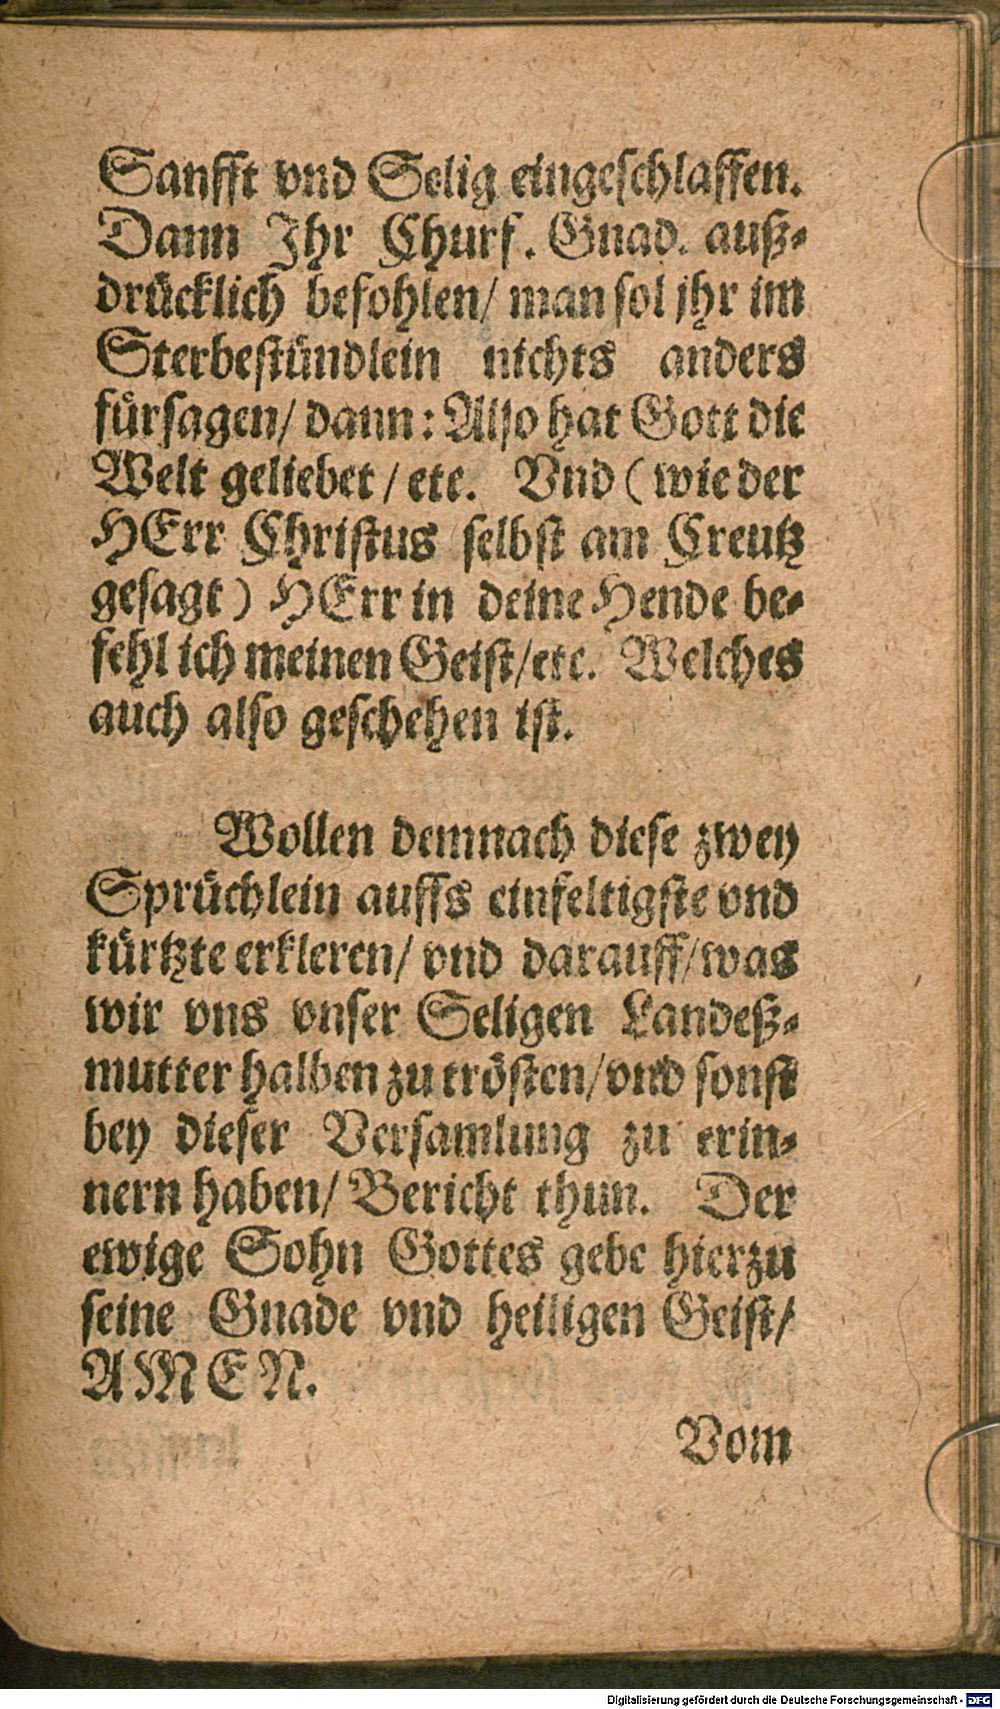 Sanfft vnd Selig eingeschlaffen.
Dann Ihr Churf. Gnad. auß-
drücklich befohlen/ man sol jhr im
Sterbestündlein nichts anders
fürsagen/ dann: Also hat Gott die
Welt geliebet / etc. Vnd ( wie der
HErr Christus selbst am Creutz
gesagt ) HErr in deine Hende be-
fehl ich meinen Geist/etc. Welches
auch also geschehen ist.
Wollen demnach diese zwey
Sprüchlein auffs einfeltigste vnd
kürtzte erkleren/ vnd darauff/was
wir vns vnser Seligen Landeß-
mutter halben zu trösten/vnd sonst
bey dieser Versamlung zu erin-
nern haben/ Bericht thun. Der
ewige Sohn Gottes gebe hierzu
seine Gnade vnd heiligen Geist/
AMEN.
Vom
Digitalisierung gefördert durch die Deutsche Forschungsgemeinschaft - DFG